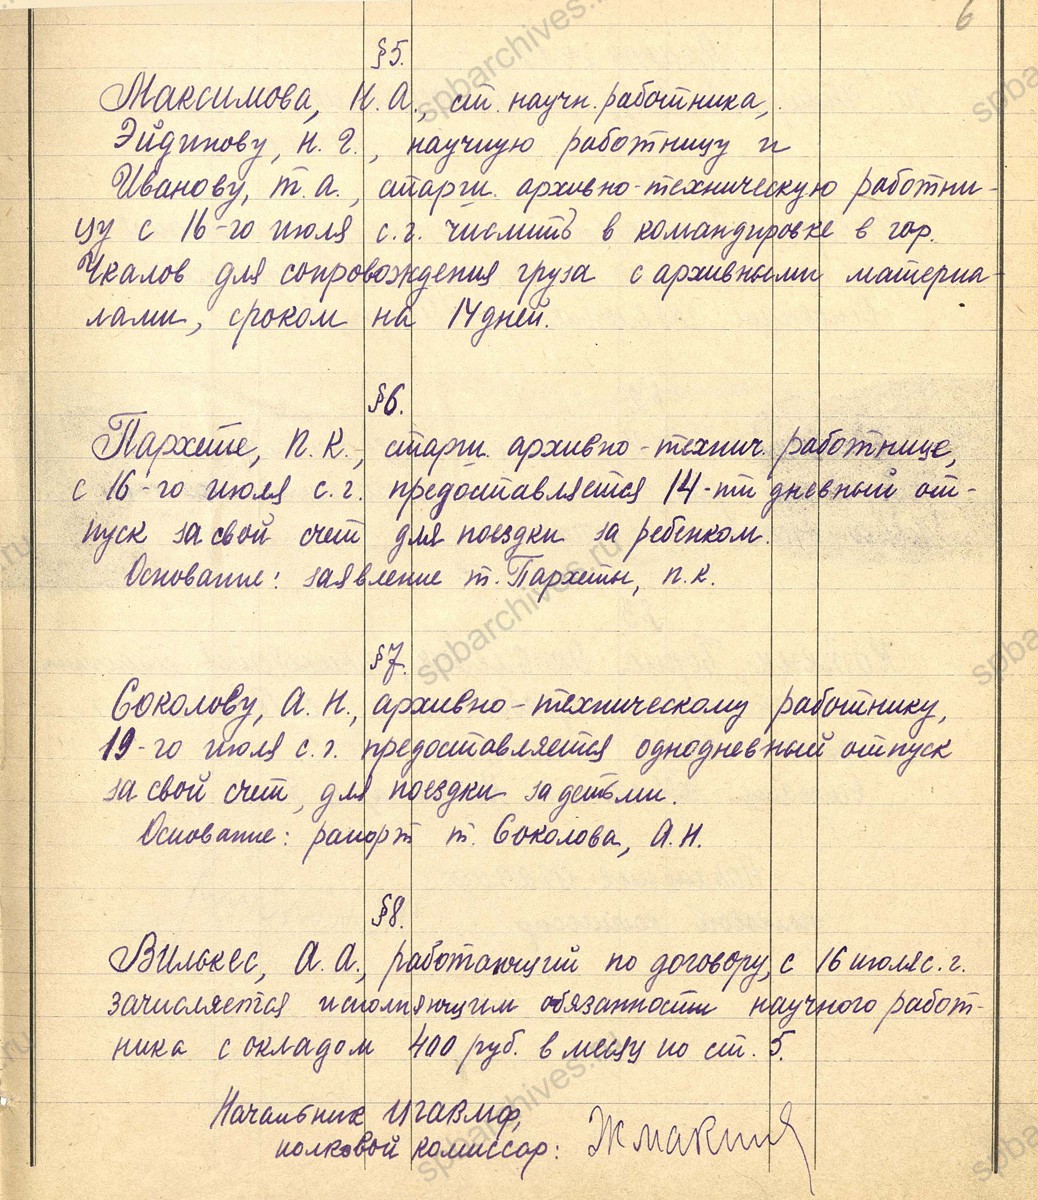 6
§5.
Максимова, Н. А., ст. научн. работника,
Эйдинову, Н. Г., научную работницу и
Иванову, Т. А., старш. архивно-техническую работни-
цу с 16-го июля с.г. числить в командировке в гор.
Чкалов для сопровождения груза с архивными материа-
лами, сроком на 14 дней.
§6.
Пархете, П. К., старш. архивно-технич. работнице,
с 16-го июля с.г. предоставляется 14-ти дневный от-
пуск за свой счет для поездки за ребенком.
Основание: заявление т. Пархеты, П. К.
§7.
Соколову, А. Н., архивно-техническому работнику,
19-го июля с.г. предоставляется однодневный отпуск
за свой счет, для поездки за детьми.
Основание: рапорт т. Соколова, А. Н.
§8.
Вилькес, А. А., работающий по договору, с 16 июля с.г.
зачисляется исполняющим обязанности научного работ-
ника с окладом 400 руб. в месяц по ст. 5.
Начальник ЦГАВМФ,
полковой комиссар: Жмакин
spbarchives.ru